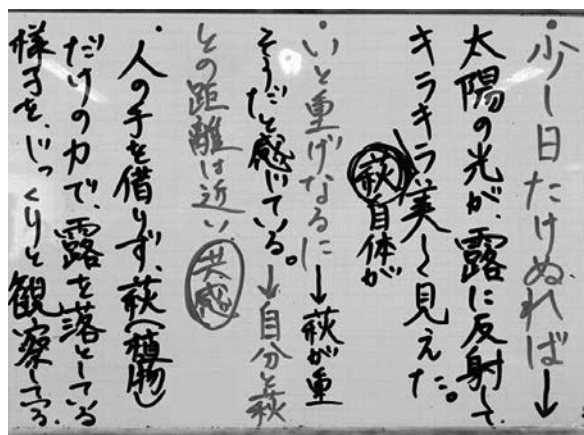 ・少し日たけぬれば→
太陽の光が、露に反射して
キラキラ美しく見えた。
萩自体が
・いと重げなるに→萩が重
そうだと感じている。→自分と萩
との距離は近い 共感
・人の手を借りず、萩(植物)
だけの力で、露を落としている
様子を、じっくりと観察してる。